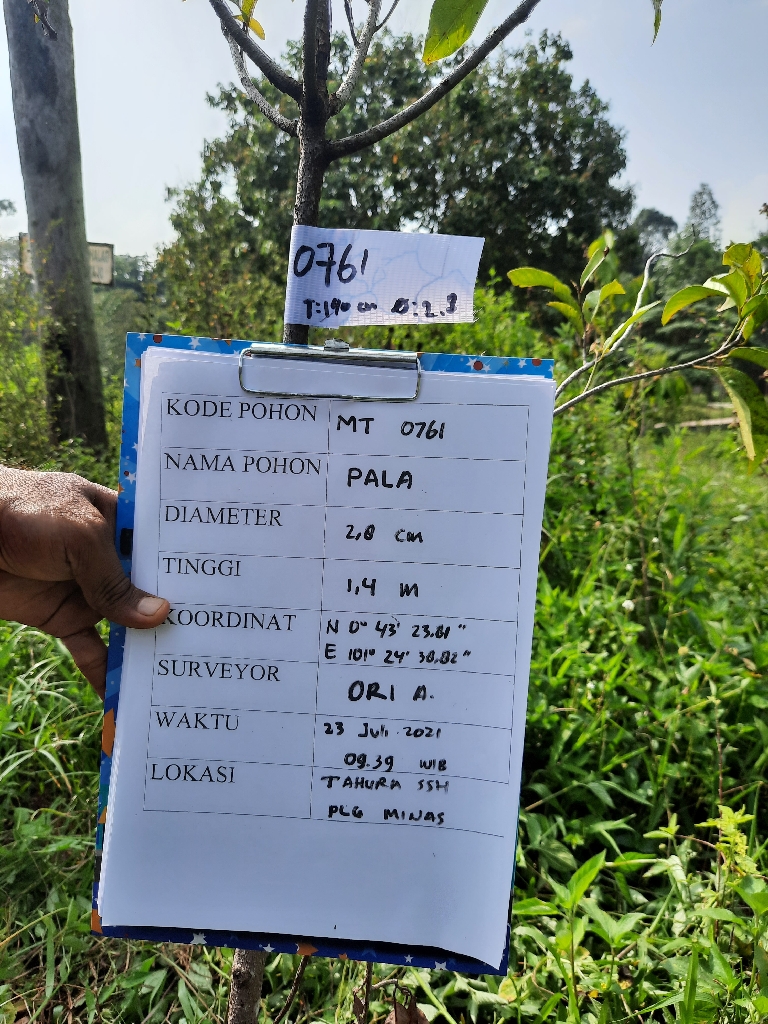 0761
T:140 cm Ø:2.8
KODE POHON MT 0761
NAMA POHON PALA
DIAMETER 2,8 cm
TINGGI 1,4 m
KOORDINAT N 0° 43' 23.81"
E 101° 24' 38.82"
SURVEYOR ORI A.
WAKTU 23 Juli 2021
09.39 WIB
LOKASI TAHURA SSH
PLG MINAS